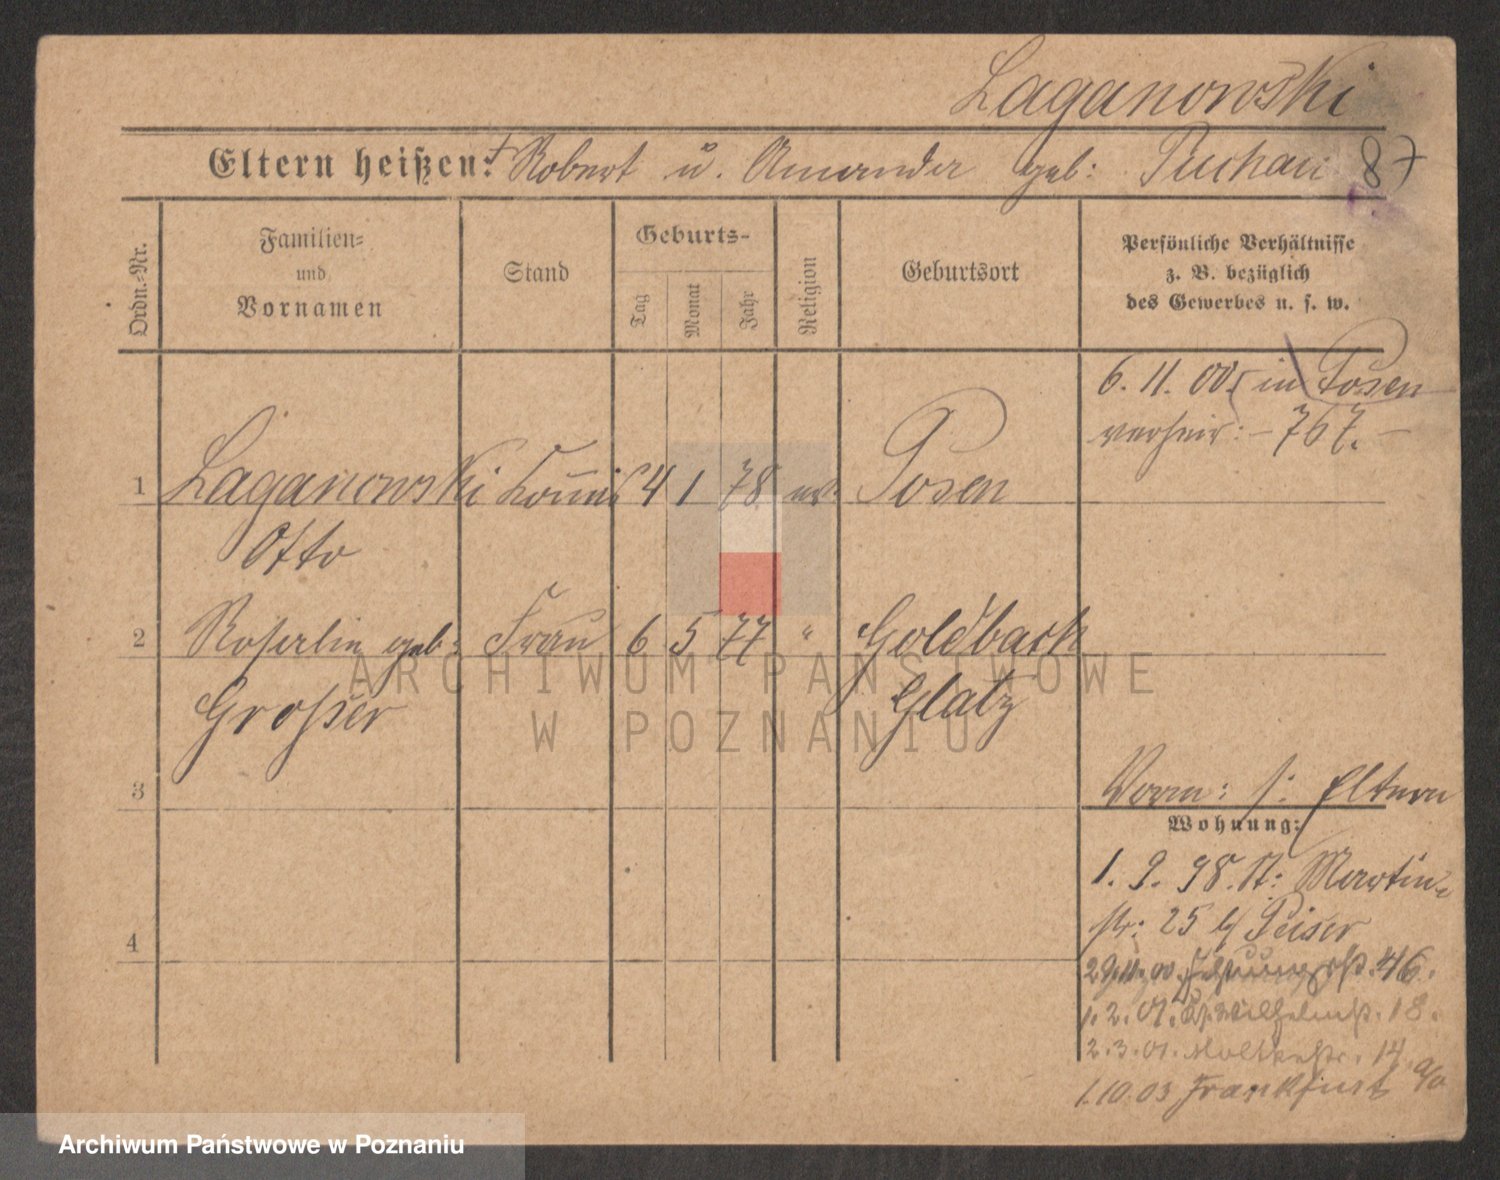 Laganowski
Eltern heißen: † Robert u. Amanda geb: Puchan 87
Ordn.-Nr.
Familien-
und
Vornamen
Stand
Geburts-
Tag
Monat
Jahr
Religion
Geburtsort
Persönliche Verhältnisse
z. B. bezüglich
des Gewerbes u. s. w.
6. 11. 00. in Posen
verheir: – 767. –
1 Laganowski Commis 4 1 78 ev. Posen
Otto
2 geb: Frau 6 5 77 " Goldbach
Großer Glatz
3
Vorm: s: Eltern
Wohnung:
1. 9. 98. St: Martin-
str: 25 b/ Peiser
4
29. 11. 00. 46.
1. 2. 01. Kl. Wilhelmst. 18.
2. 3. 01. Moltkestr. 14
1. 10. 03 Frankfurt a/o
ARCHIWUM PAŃSTWOWE
W POZNANIU
Archiwum Państwowe w Poznaniu